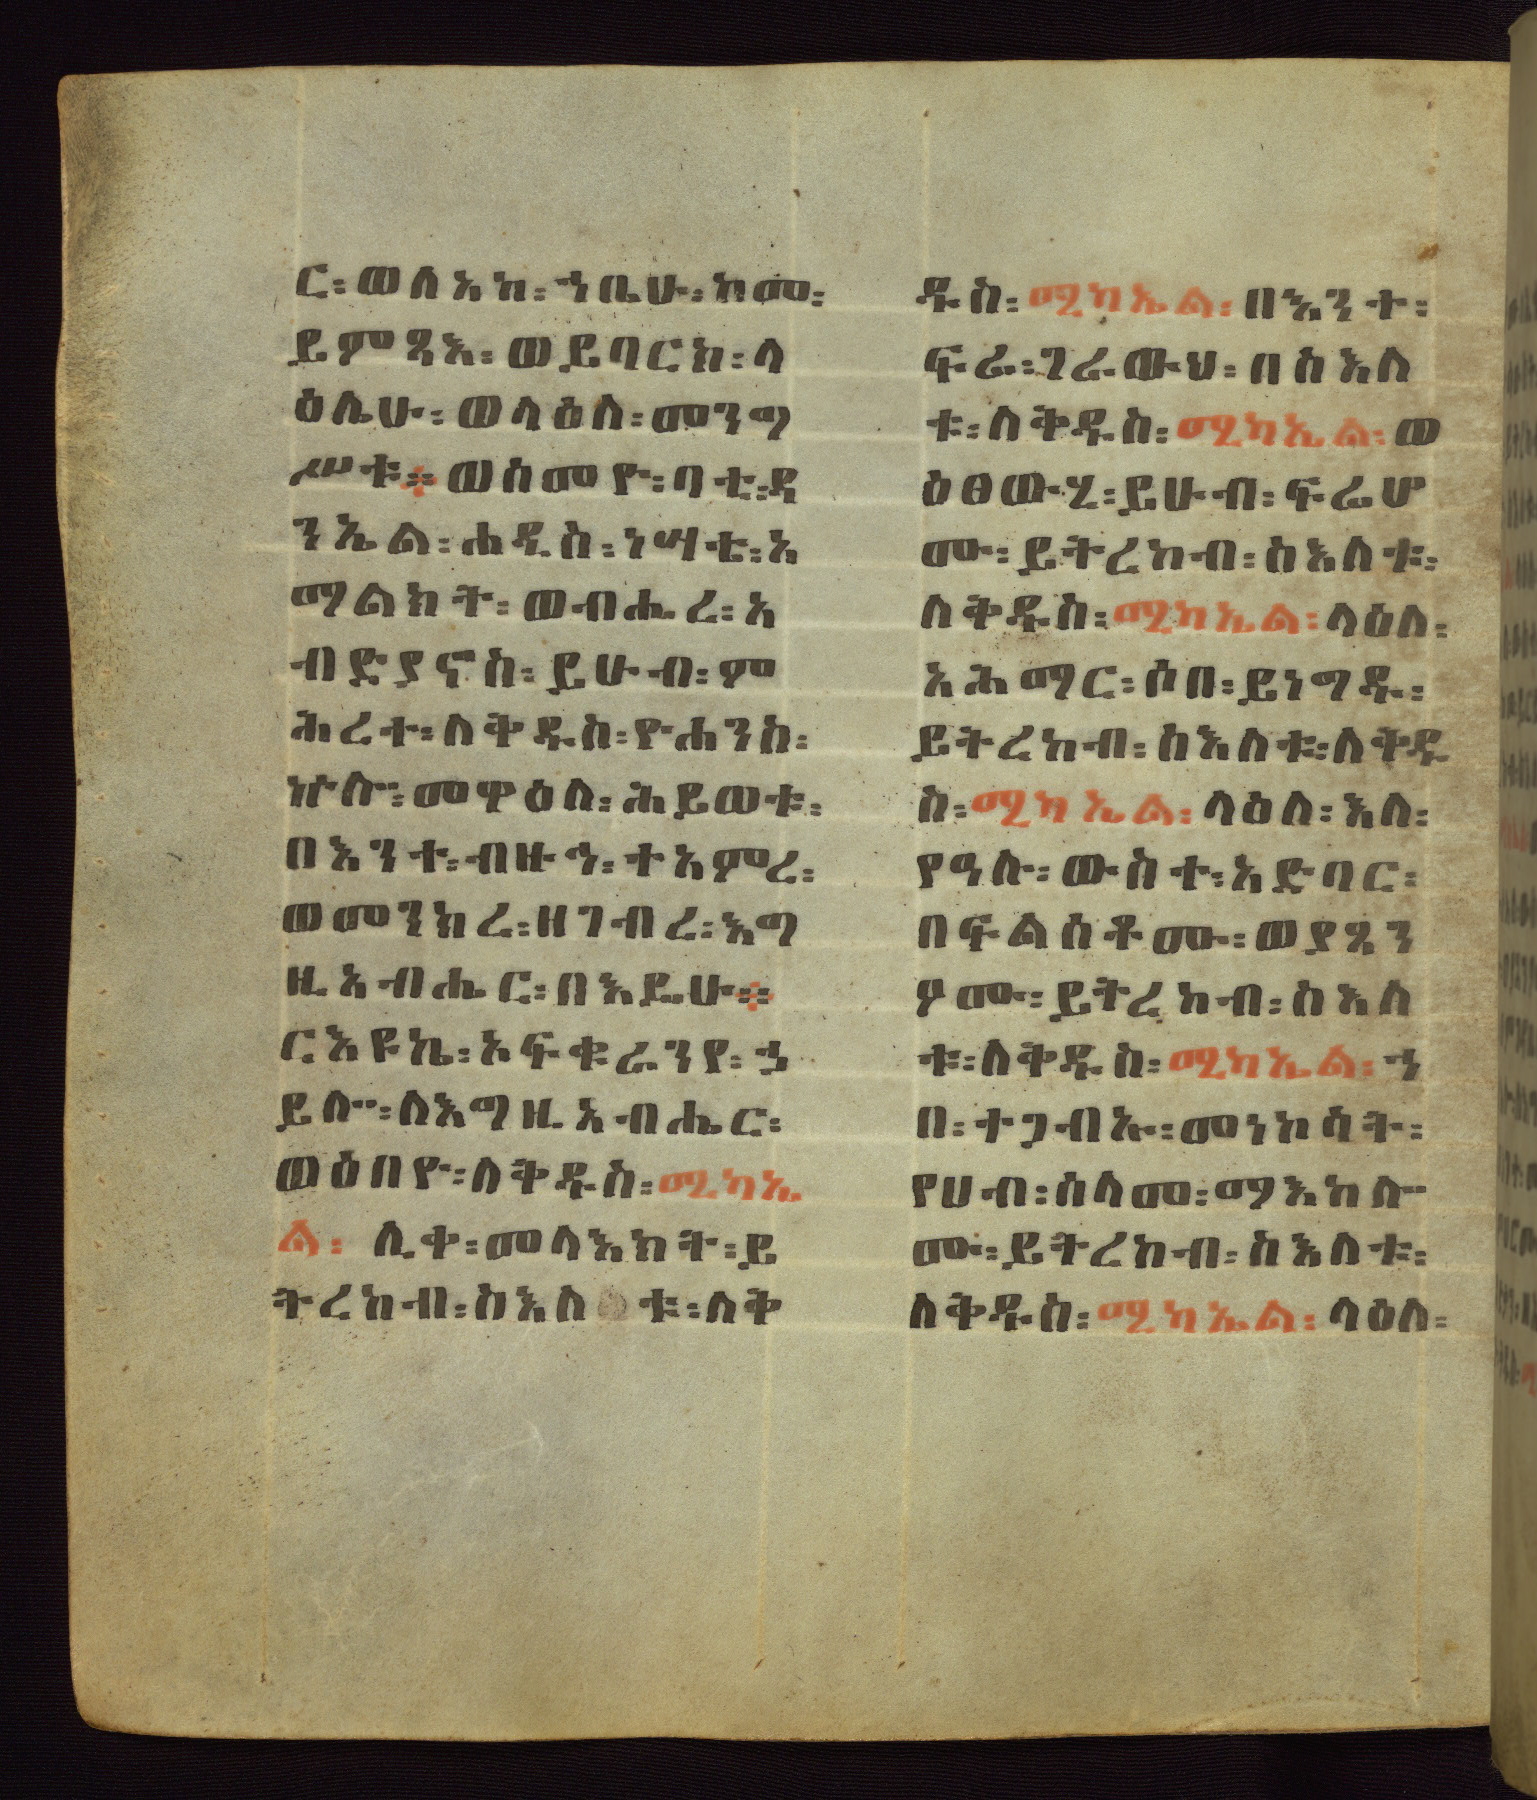 ር፡ወለአከ፡ኀቤሁ፡ከመ፡
ይምጻእ፡ወይባርክ፡ላ
ዕሌሁ፡ወላዕለ፡መንግ
ሥቱ።ወሰመዮ፡ባቲ፡ዳ
ንኤል፡ሐዲስ፡ነሣቴ፡አ
ማልክት፡ወብሔረ፡አ
ብድያኖስ፡ይሁብ፡ምም
ሕረተ፡ለቅዱስ፡ዮሐንስ፡
ኵሉ፡መዋዕለ፡ሕይወቱ፡
በእንተ፡ብዙኅ፡ተአምረ፡
ወመንክረ፡ዘገብረ፡እግ
ዚአብሔር፡በእዴሁ።
ርእዩኬ፡አፍቁራንየ፡ኃ
ይሎ፡ለእግዚአብሔር፡
ወዕበዮ፡ለቅዱስ፡ሚካኤ
ል፡ሊቀ፡መላእክት፡ይ
ትረከብ፡ስእለቱ፡ለቅ
ዱስ፡ሚካኤል፡በእንተ፡
ፍሬ፡ገራውህ፡በስእለ
ቱ፡ለቅዱስ፡ሚካኤል፡ወ
ዕፀውሂ፡ይሁብ፡ፍሬሆ
ሙ፡ይትረከብ፡ስእለቱ፡
ለቅዱስ፡ሚካኤል፡ላዕለ፡
አሕማር፡ሶበ፡ይነግዱ፡
ይትረከብ፡ስእለቱ፡ለቅዱ
ስ፡ሚካኤል፡ላዕለ፡እለ፡
የዓሉ፡ውስተ፡አድባር፡
በፍልሰቶሙ፡ወያጸን
ዖሙ፡ይትረከብ፡ስእለ
ቱ፡ለቅዱስ፡ሚካኤል፡ኀ
በ፡ተጋብኡ፡መነኮሳት፡
የሀብ፡ሰላመ፡ማእከሎ
ሙ፡ይትረከብ፡ስእለቱ፡
ለቅዱስ፡ሚካኤል፡ላዕለ፡